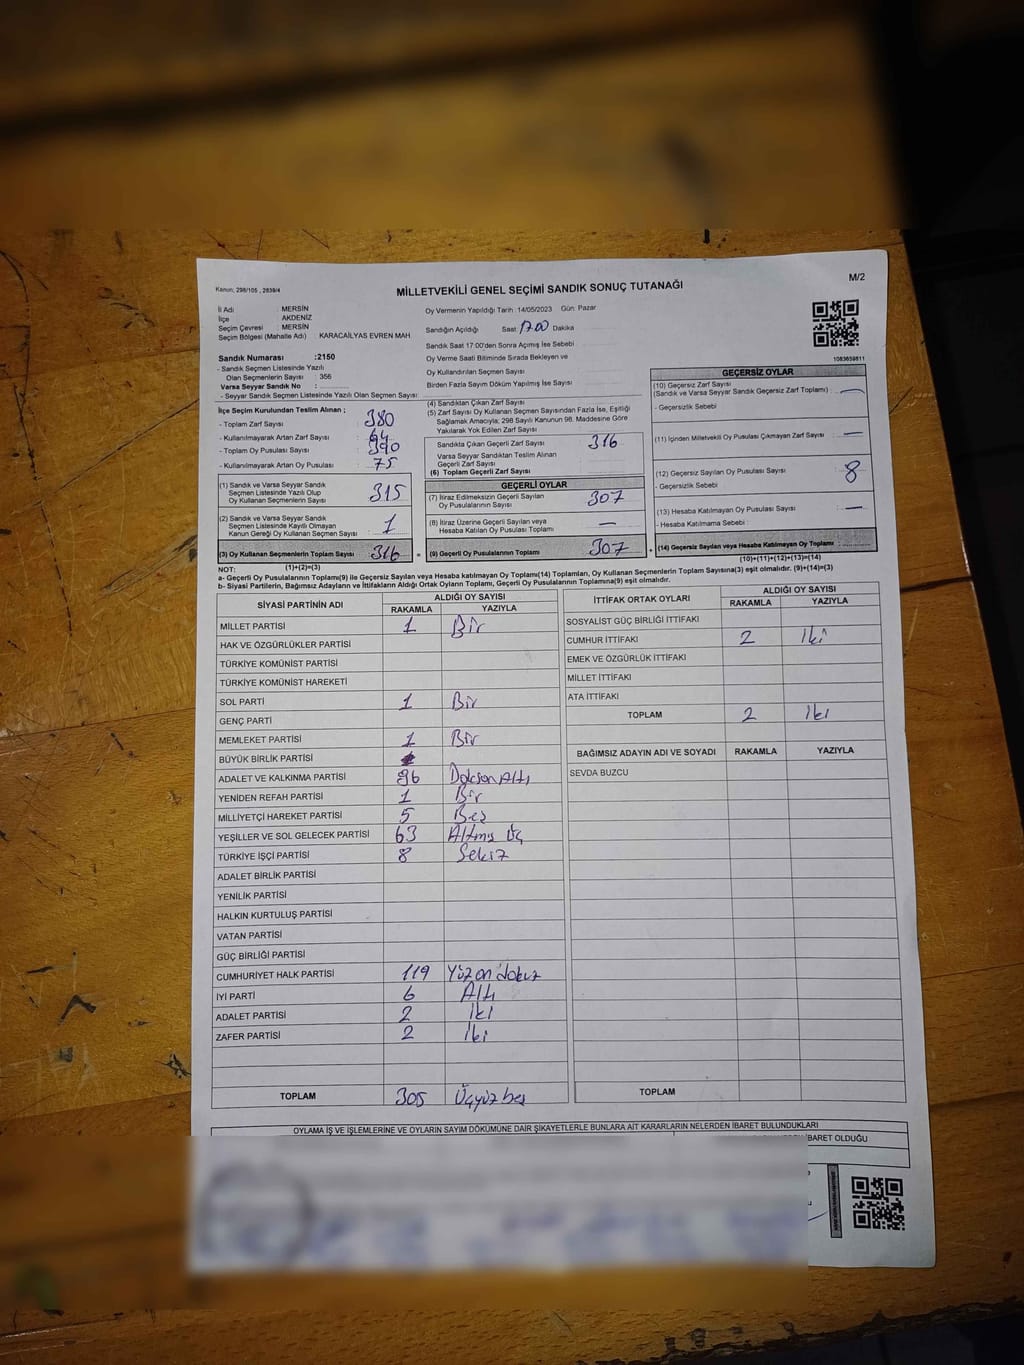 Kanun, 298/105 , 2839/4
M/2
MİLLETVEKİLİ GENEL SEÇİMİ SANDIK SONUÇ TUTANAĞI
İl Adı : MERSİN
İlçe : AKDENİZ
Seçim Çevresi : MERSİN
Seçim Bölgesi (Mahalle Adı) : KARACAİLYAS EVREN MAH
Sandık Numarası :2150
- Sandık Seçmen Listesinde Yazılı
Olan Seçmenlerin Sayısı : 356
Varsa Seyyar Sandık No :
- Seyyar Sandık Seçmen Listesinde Yazılı Olan Seçmen Sayısı
Oy Vermenin Yapıldığı Tarih : 14/05/2023 Gün: Pazar
Sandığın Açıldığı Saat 17.00 Dakika
Sandık Saat 17:00'den Sonra Açımış İse Sebebi
Oy Verme Saati Bitiminde Sırada Bekleyen ve
Oy Kullandırılan Seçmen Sayısı
Birden Fazla Sayım Döküm Yapılmış İse Sayısı
1083659811
İlçe Seçim Kurulundan Teslim Alınan ;
- Toplam Zarf Sayısı : 380
- Kullanılmayarak Artan Zarf Sayısı : 64
- Toplam Oy Pusulası Sayısı : 390
- Kullanılmayarak Artan Oy Pusulası : 75
(1) Sandık ve Varsa Seyyar Sandık
Seçmen Listesinde Yazılı Olup
Oy Kullanan Seçmenlerin Sayısı : 315
(2) Sandık ve Varsa Seyyar Sandık
Seçmen Listesinde Kayıtlı Olmayan
Kanun Gereği Oy Kullanan Seçmen Sayısı : 1
(3) Oy Kullanan Seçmenlerin Toplam Sayısı : 316
(4) Sandıktan Çıkan Zarf Sayısı
(5) Zarf Sayısı Oy Kullanan Seçmen Sayısından Fazla İse, Eşitliği
Sağlamak Amacıyla; 298 Sayılı Kanunun 98. Maddesine Göre
Yakılarak Yok Edilen Zarf Sayısı
Sandıkta Çıkan Geçerli Zarf Sayısı 316
Varsa Seyyar Sandıktan Teslim Alınan
Geçerli Zarf Sayısı
(6) Toplam Geçerli Zarf Sayısı
GEÇERLİ OYLAR
(7) İtiraz Edilmeksizin Geçerli Sayılan
Oy Pusulalarının Sayısı : 307
(8) İtiraz Üzerine Geçerli Sayılan veya
Hesaba Katılan Oy Pusulası Toplamı : —
(9) Geçerli Oy Pusulalarının Toplamı : 307
GEÇERSİZ OYLAR
(10) Geçersiz Zarf Sayısı
(Sandık ve Varsa Seyyar Sandık Geçersiz Zarf Toplamı) : —
- Geçersizlik Sebebi
(11) İçinden Milletvekili Oy Pusulası Çıkmayan Zarf Sayısı : —
(12) Geçersiz Sayılan Oy Pusulası Sayısı : 8
- Geçersizlik Sebebi
(13) Hesaba Katılmayan Oy Pusulası Sayısı : —
- Hesaba Katılmama Sebebi :
(14) Geçersiz Sayılan veya Hesaba Katılmayan Oy Toplamı :
(10)+(11)+(12)+(13)=(14)
NOT: (1)+(2)=(3)
a- Geçerli Oy Pusulalarının Toplamı(9) ile Geçersiz Sayılan veya Hesaba katılmayan Oy Toplamı(14) Toplamları, Oy Kullanan Seçmenlerin Toplam Sayısına(3) eşit olmalıdır. (9)+(14)=(3)
b- Siyasi Partilerin, Bağımsız Adayların ve İttifakların Aldığı Ortak Oyların Toplamı, Geçerli Oy Pusulalarının Toplamına(9) eşit olmalıdır.
SİYASİ PARTİNİN ADI ALDIĞI OY SAYISI
RAKAMLA YAZIYLA
MİLLET PARTİSİ 1 Bir
HAK VE ÖZGÜRLÜKLER PARTİSİ
TÜRKİYE KOMÜNİST PARTİSİ
TÜRKİYE KOMÜNİST HAREKETİ
SOL PARTİ 1 Bir
GENÇ PARTİ
MEMLEKET PARTİSİ 1 Bir
BÜYÜK BİRLİK PARTİSİ
ADALET VE KALKINMA PARTİSİ 96 Doksan Altı
YENİDEN REFAH PARTİSİ 1 Bir
MİLLİYETÇİ HAREKET PARTİSİ 5 Beş
YEŞİLLER VE SOL GELECEK PARTİSİ 63 Altmış Üç
TÜRKİYE İŞÇİ PARTİSİ 8 Sekiz
ADALET BİRLİK PARTİSİ
YENİLİK PARTİSİ
HALKIN KURTULUŞ PARTİSİ
VATAN PARTİSİ
GÜÇ BİRLİĞİ PARTİSİ
CUMHURİYET HALK PARTİSİ 119 Yüz on dokuz
İYİ PARTİ 6 Altı
ADALET PARTİSİ 2 iki
ZAFER PARTİSİ 2 iki
TOPLAM 305 Üçyüz beş
İTTİFAK ORTAK OYLARI ALDIĞI OY SAYISI
RAKAMLA YAZIYLA
SOSYALİST GÜÇ BİRLİĞİ İTTİFAKI
CUMHUR İTTİFAKI 2 iki
EMEK VE ÖZGÜRLÜK İTTİFAKI
MİLLET İTTİFAKI
ATA İTTİFAKI
TOPLAM 2 iki
BAĞIMSIZ ADAYIN ADI VE SOYADI RAKAMLA YAZIYLA
SEVDA BUZCU
TOPLAM
OYLAMA İŞ VE İŞLEMLERİNE VE OYLARIN SAYIM DÖKÜMÜNE DAİR ŞİKAYETLERLE BUNLARA AİT KARARLARIN NELERDEN İBARET BULUNDUKLARI
İBARET OLDUĞU